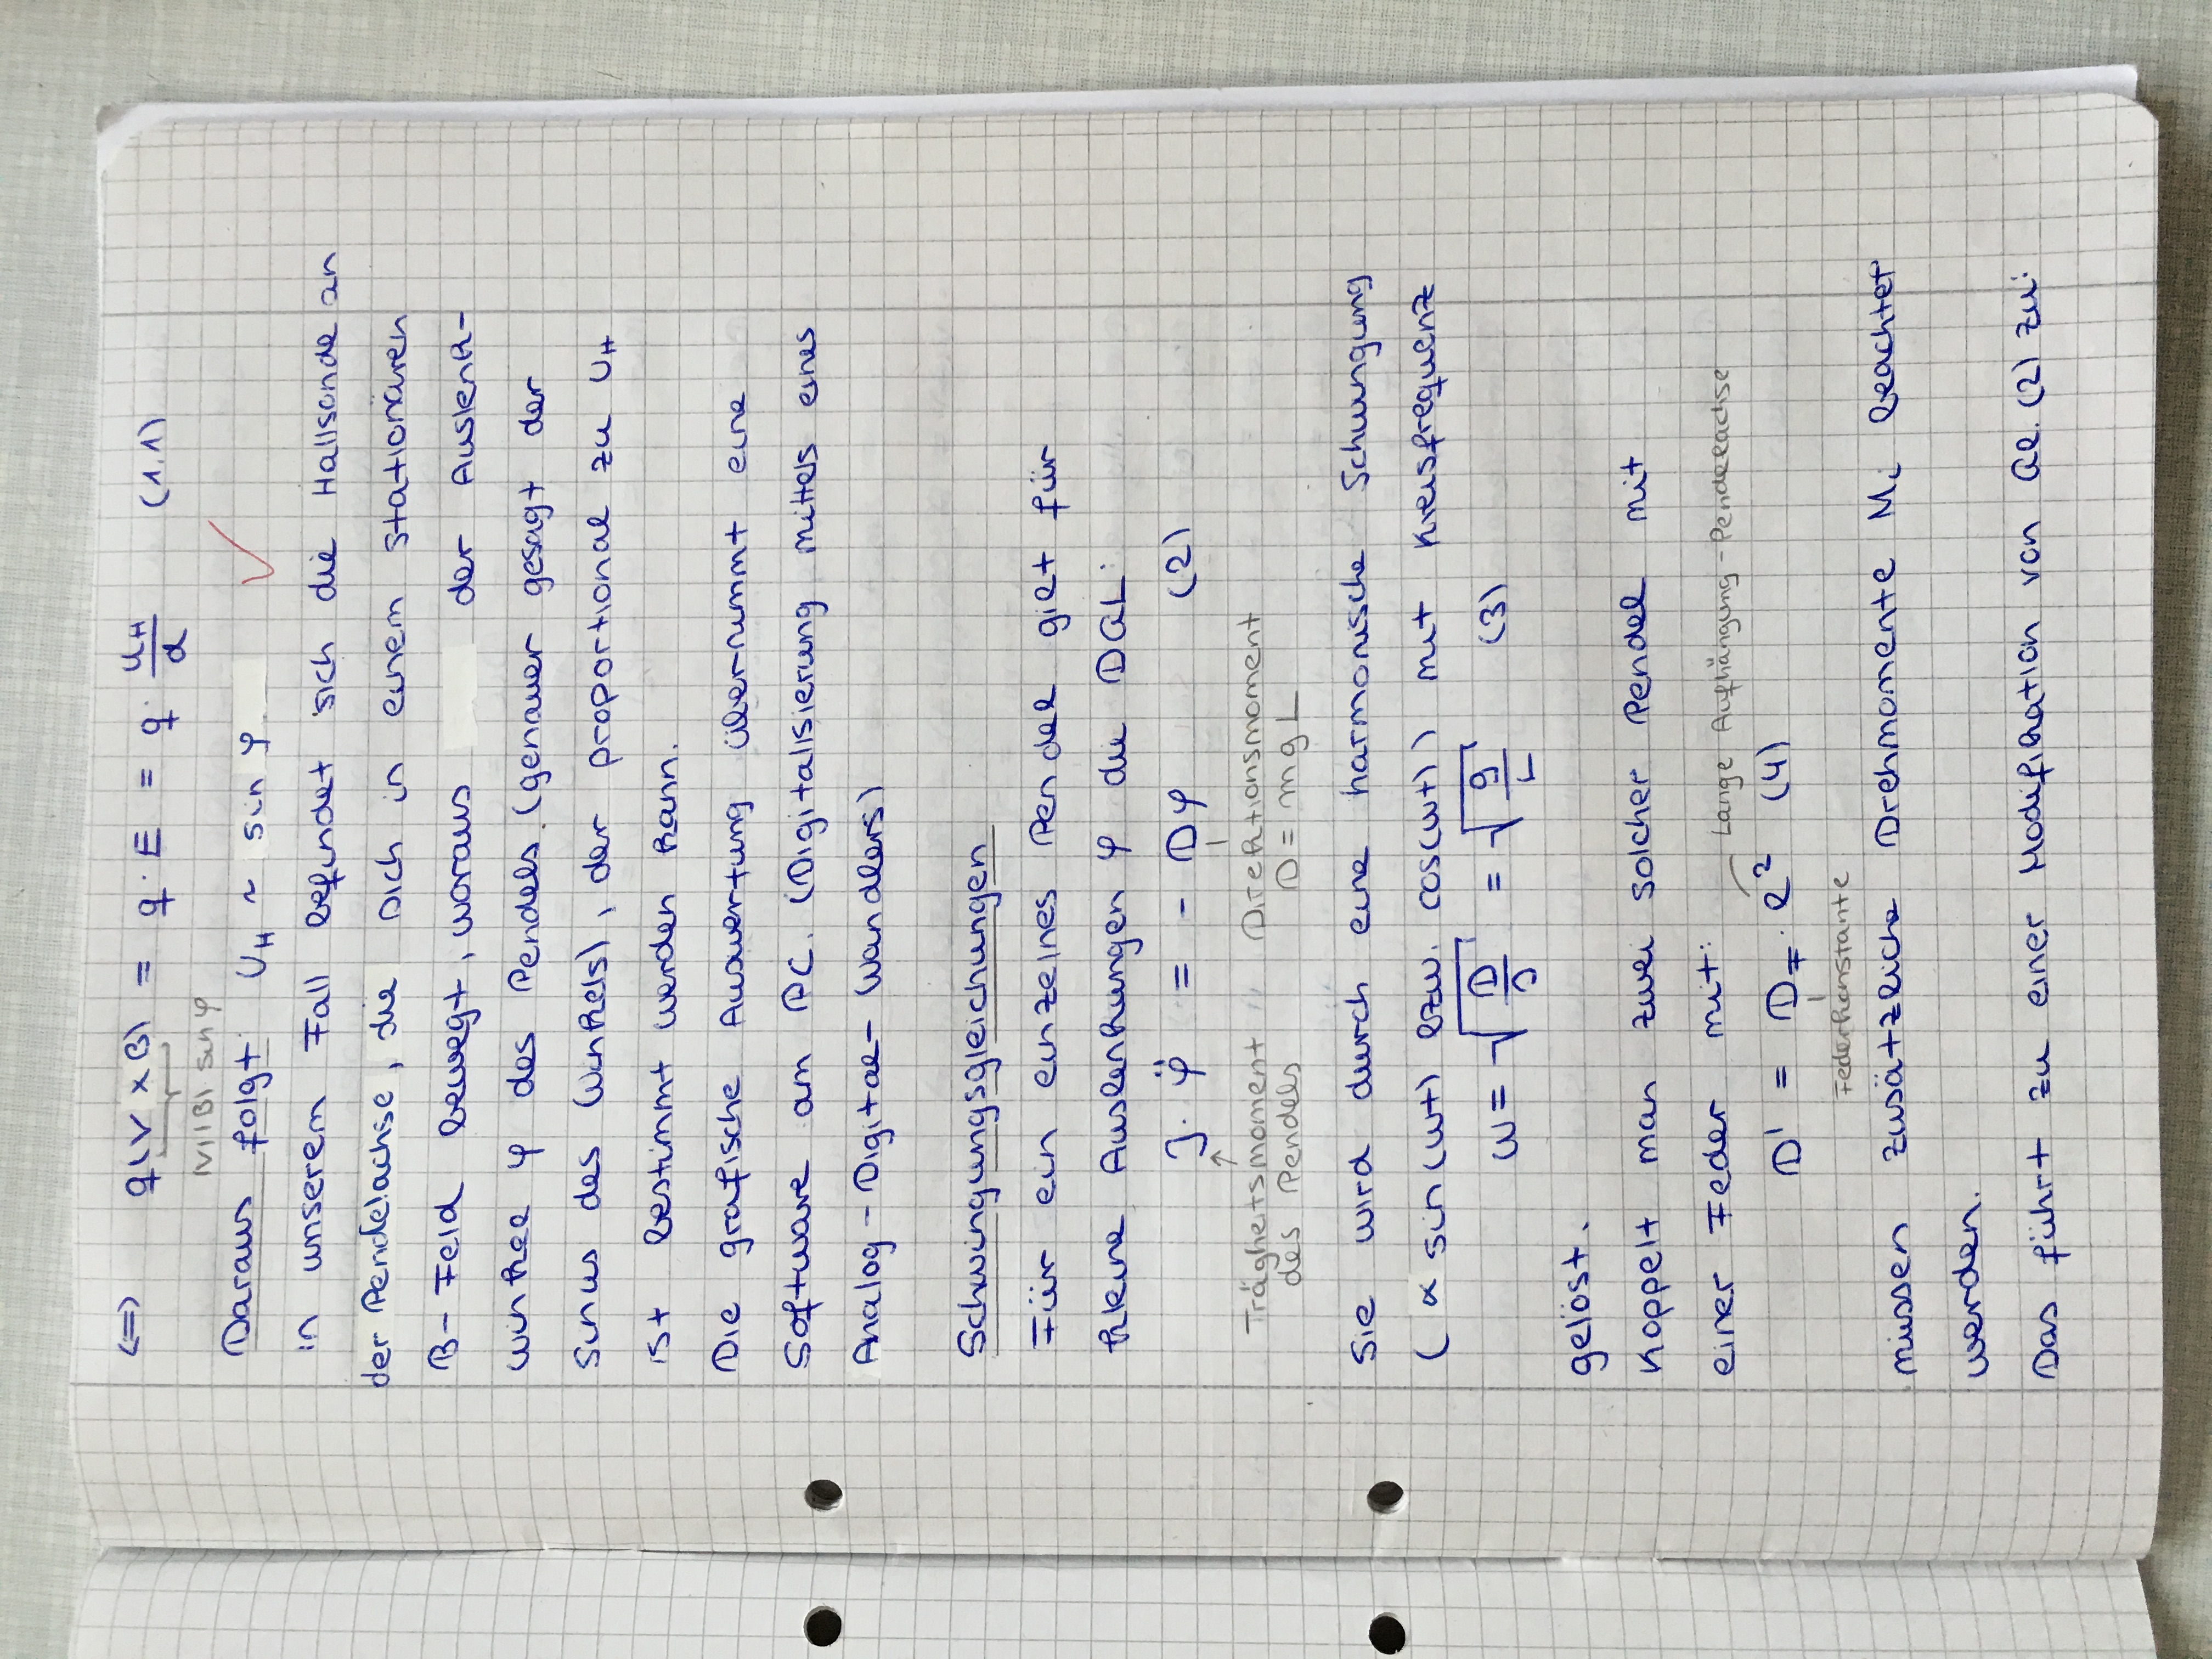 <=> q(V x B) = q · E = q · U_H/d (1.1)
|V||B| sin φ
Daraus folgt: U_H ~ sin φ
in unserem Fall befindet sich die Hallsonde an
der Pendelachse, die sich in einem stationären
B-Feld bewegt, woraus der Auslenk-
winkel φ des Pendels (genauer gesagt der
Sinus des Winkels), der proportional zu U_H
ist bestimmt werden kann.
Die grafische Auswertung übernimmt eine
Software am PC. (Digitalisierung mittels eines
Analog-Digital-Wandlers)
Schwingungsgleichungen
Für ein einzelnes Pendel gilt für
kleine Auslenkungen φ die DGL:
J · φ̈ = - Dφ (2)
Trägheitsmoment Direktionsmoment
des Pendels D = m g L
Sie wird durch eine harmonische Schwingung
(∝ sin(ωt) bzw. cos(ωt)) mit Kreisfrequenz
ω = √(D/J) = √(g/L) (3)
gelöst.
Koppelt man zwei solcher Pendel mit
einer Feder mit:
Länge Aufhängung-Pendelachse
D' = D_F · l² (4)
Federkonstante
müssen zusätzliche Drehmomente M_i beachtet
werden.
Das führt zu einer Modifikation von Gl. (2) zu: